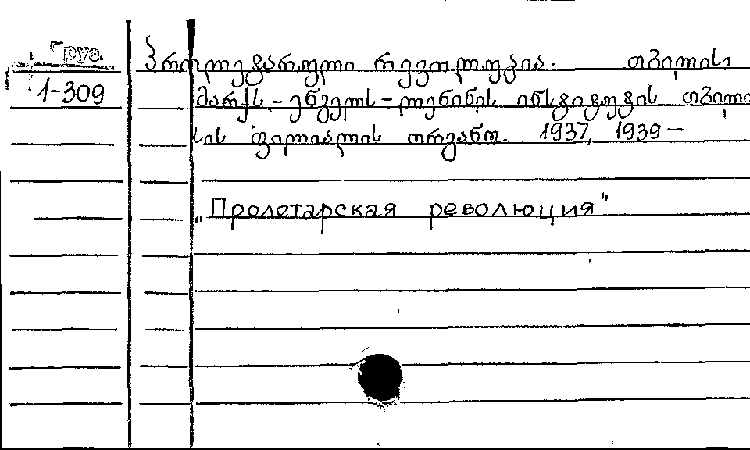 რუს.
1-309
პროლეტარული რევოლუცია. თბილისი
მარქს-ენგელს-ლენინის ინსტიტუტის თბილი
სის ფილიალის ორგანო. 1937, 1939-
„Пролетарская революция"